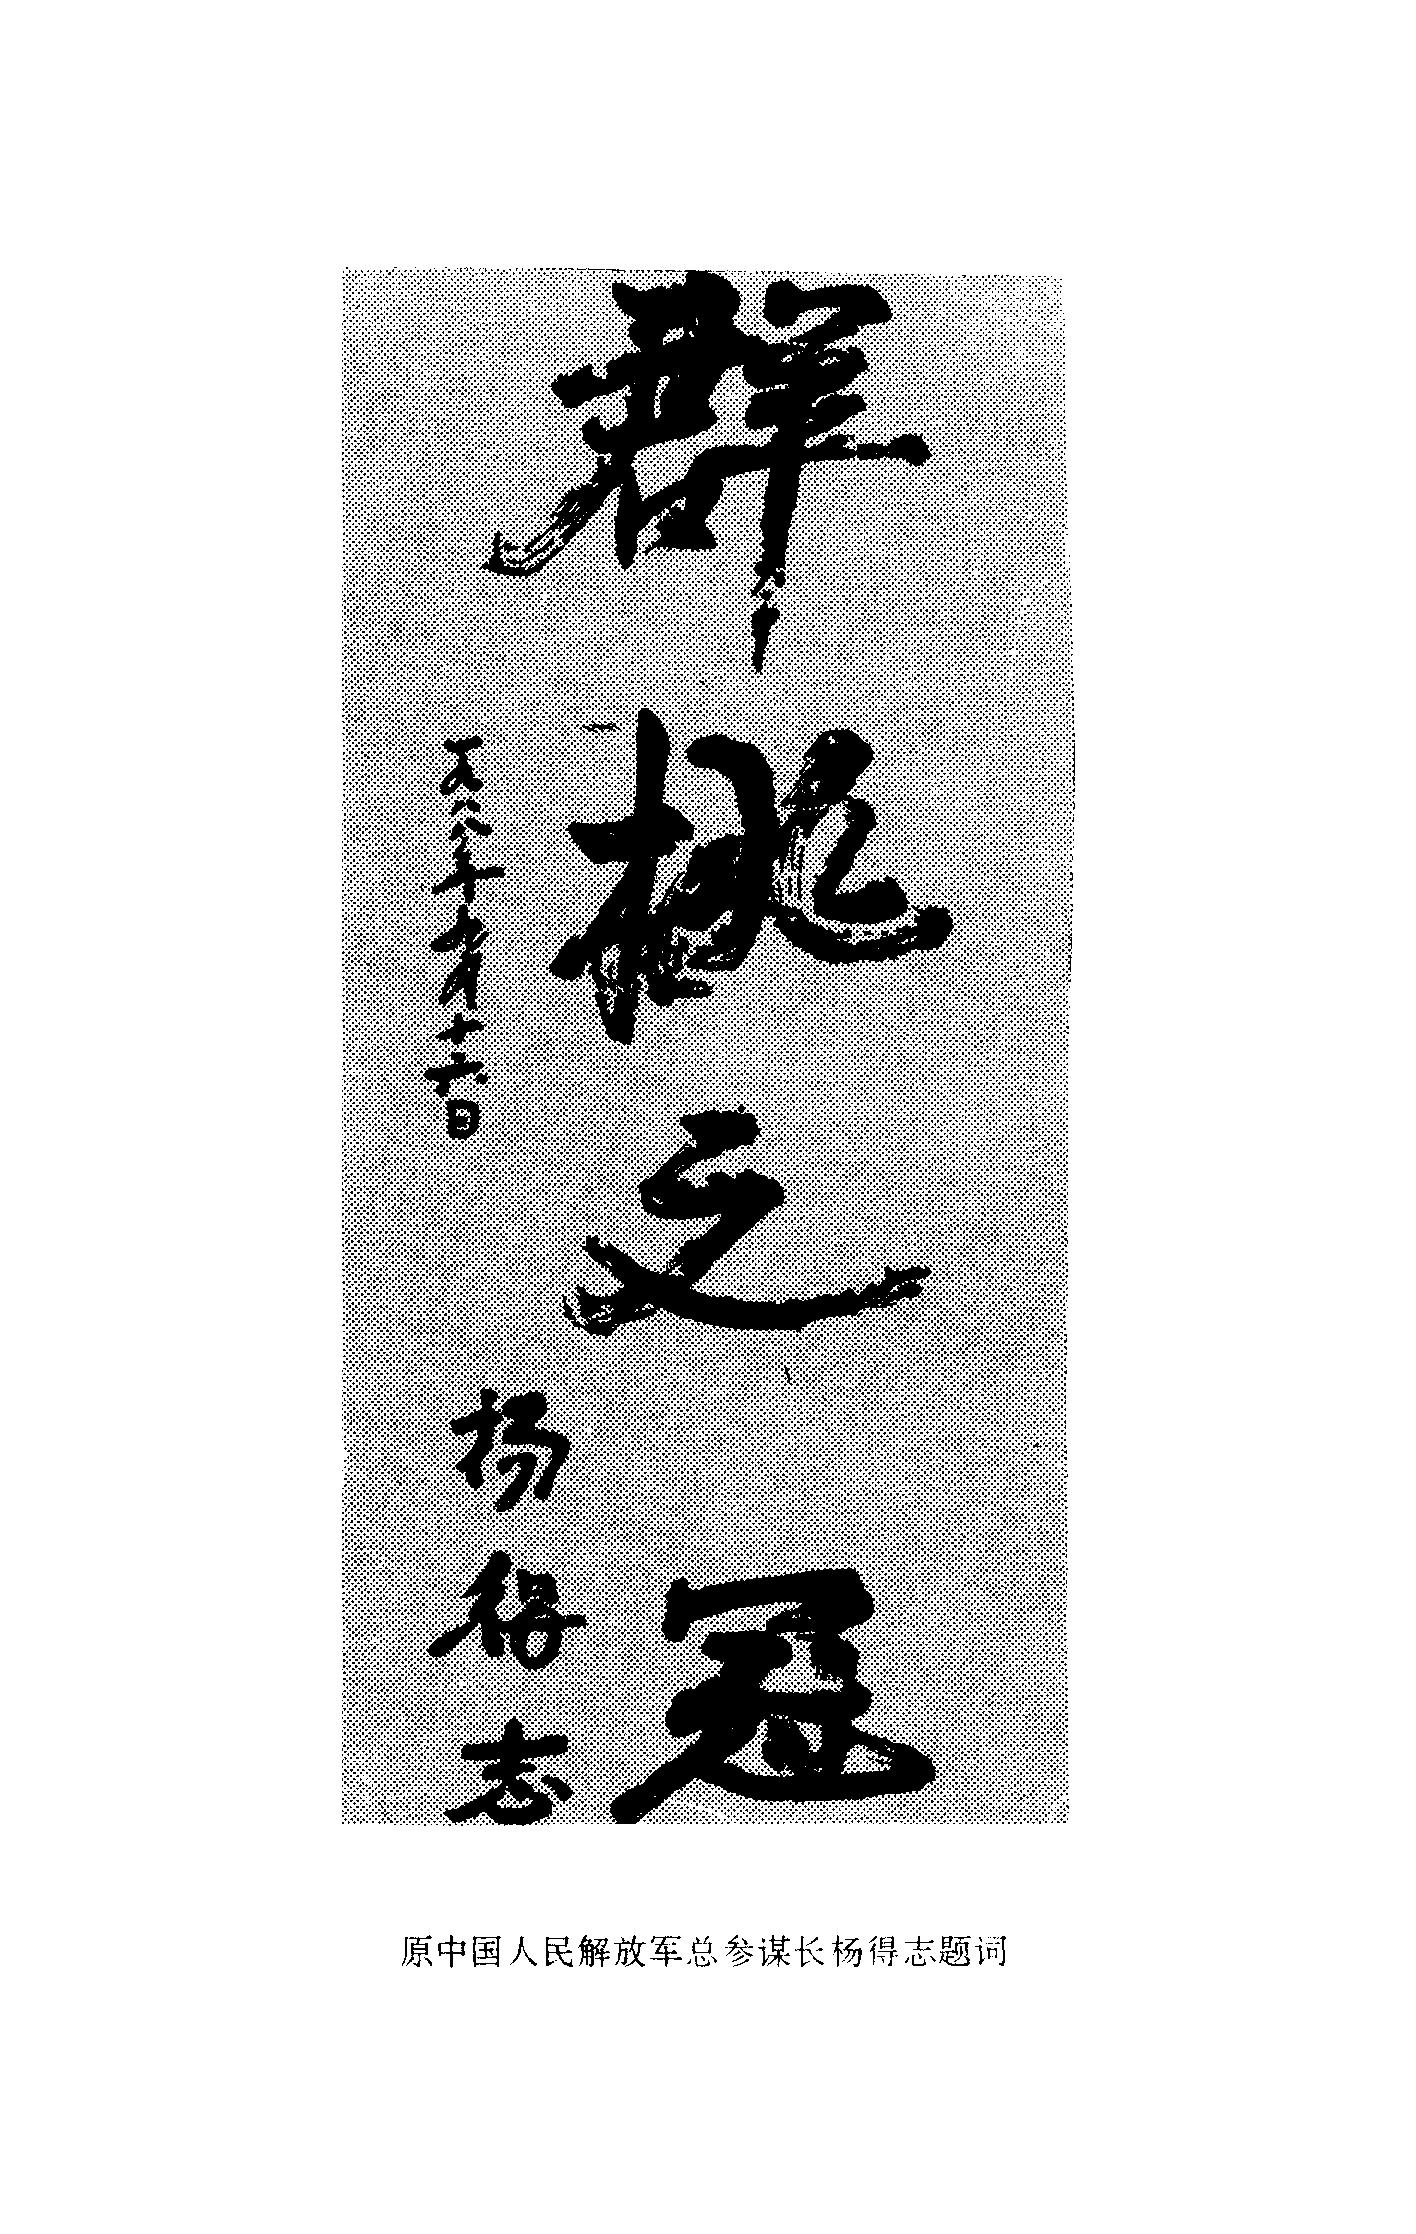 群桃之冠
一九八八年九月十六日
杨得志
原中国人民解放军总参谋长杨得志题词